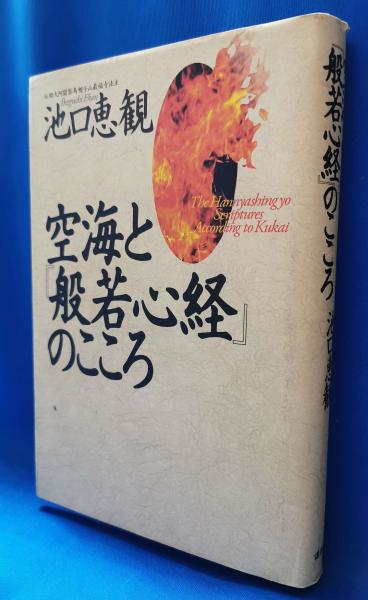 伝燈大阿闍梨烏帽子山最福寺法主
Ikeguchi Ekan
池口恵観
The Hannyashingyo
Scriptures
According to Kukai
空海と
『般若心経』
のこころ
『般若心経』のこころ 池口恵観